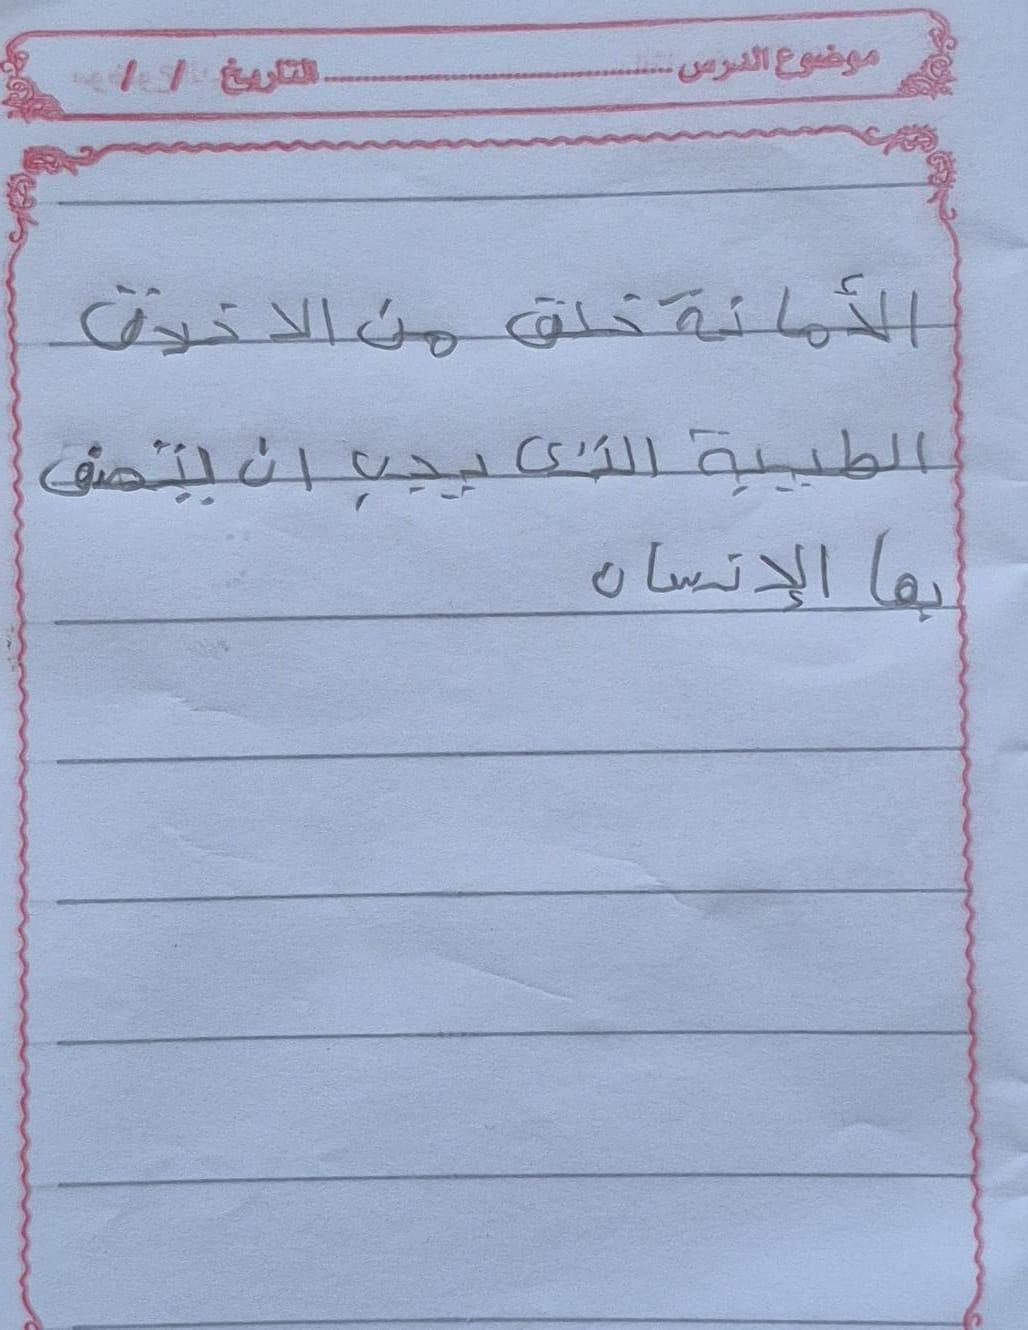 موضوع الدرس ........................ التاريخ / /
الأمانة خلق من الاخلاق
الطيبة التى يجب ان يتصف
بها الإنسان